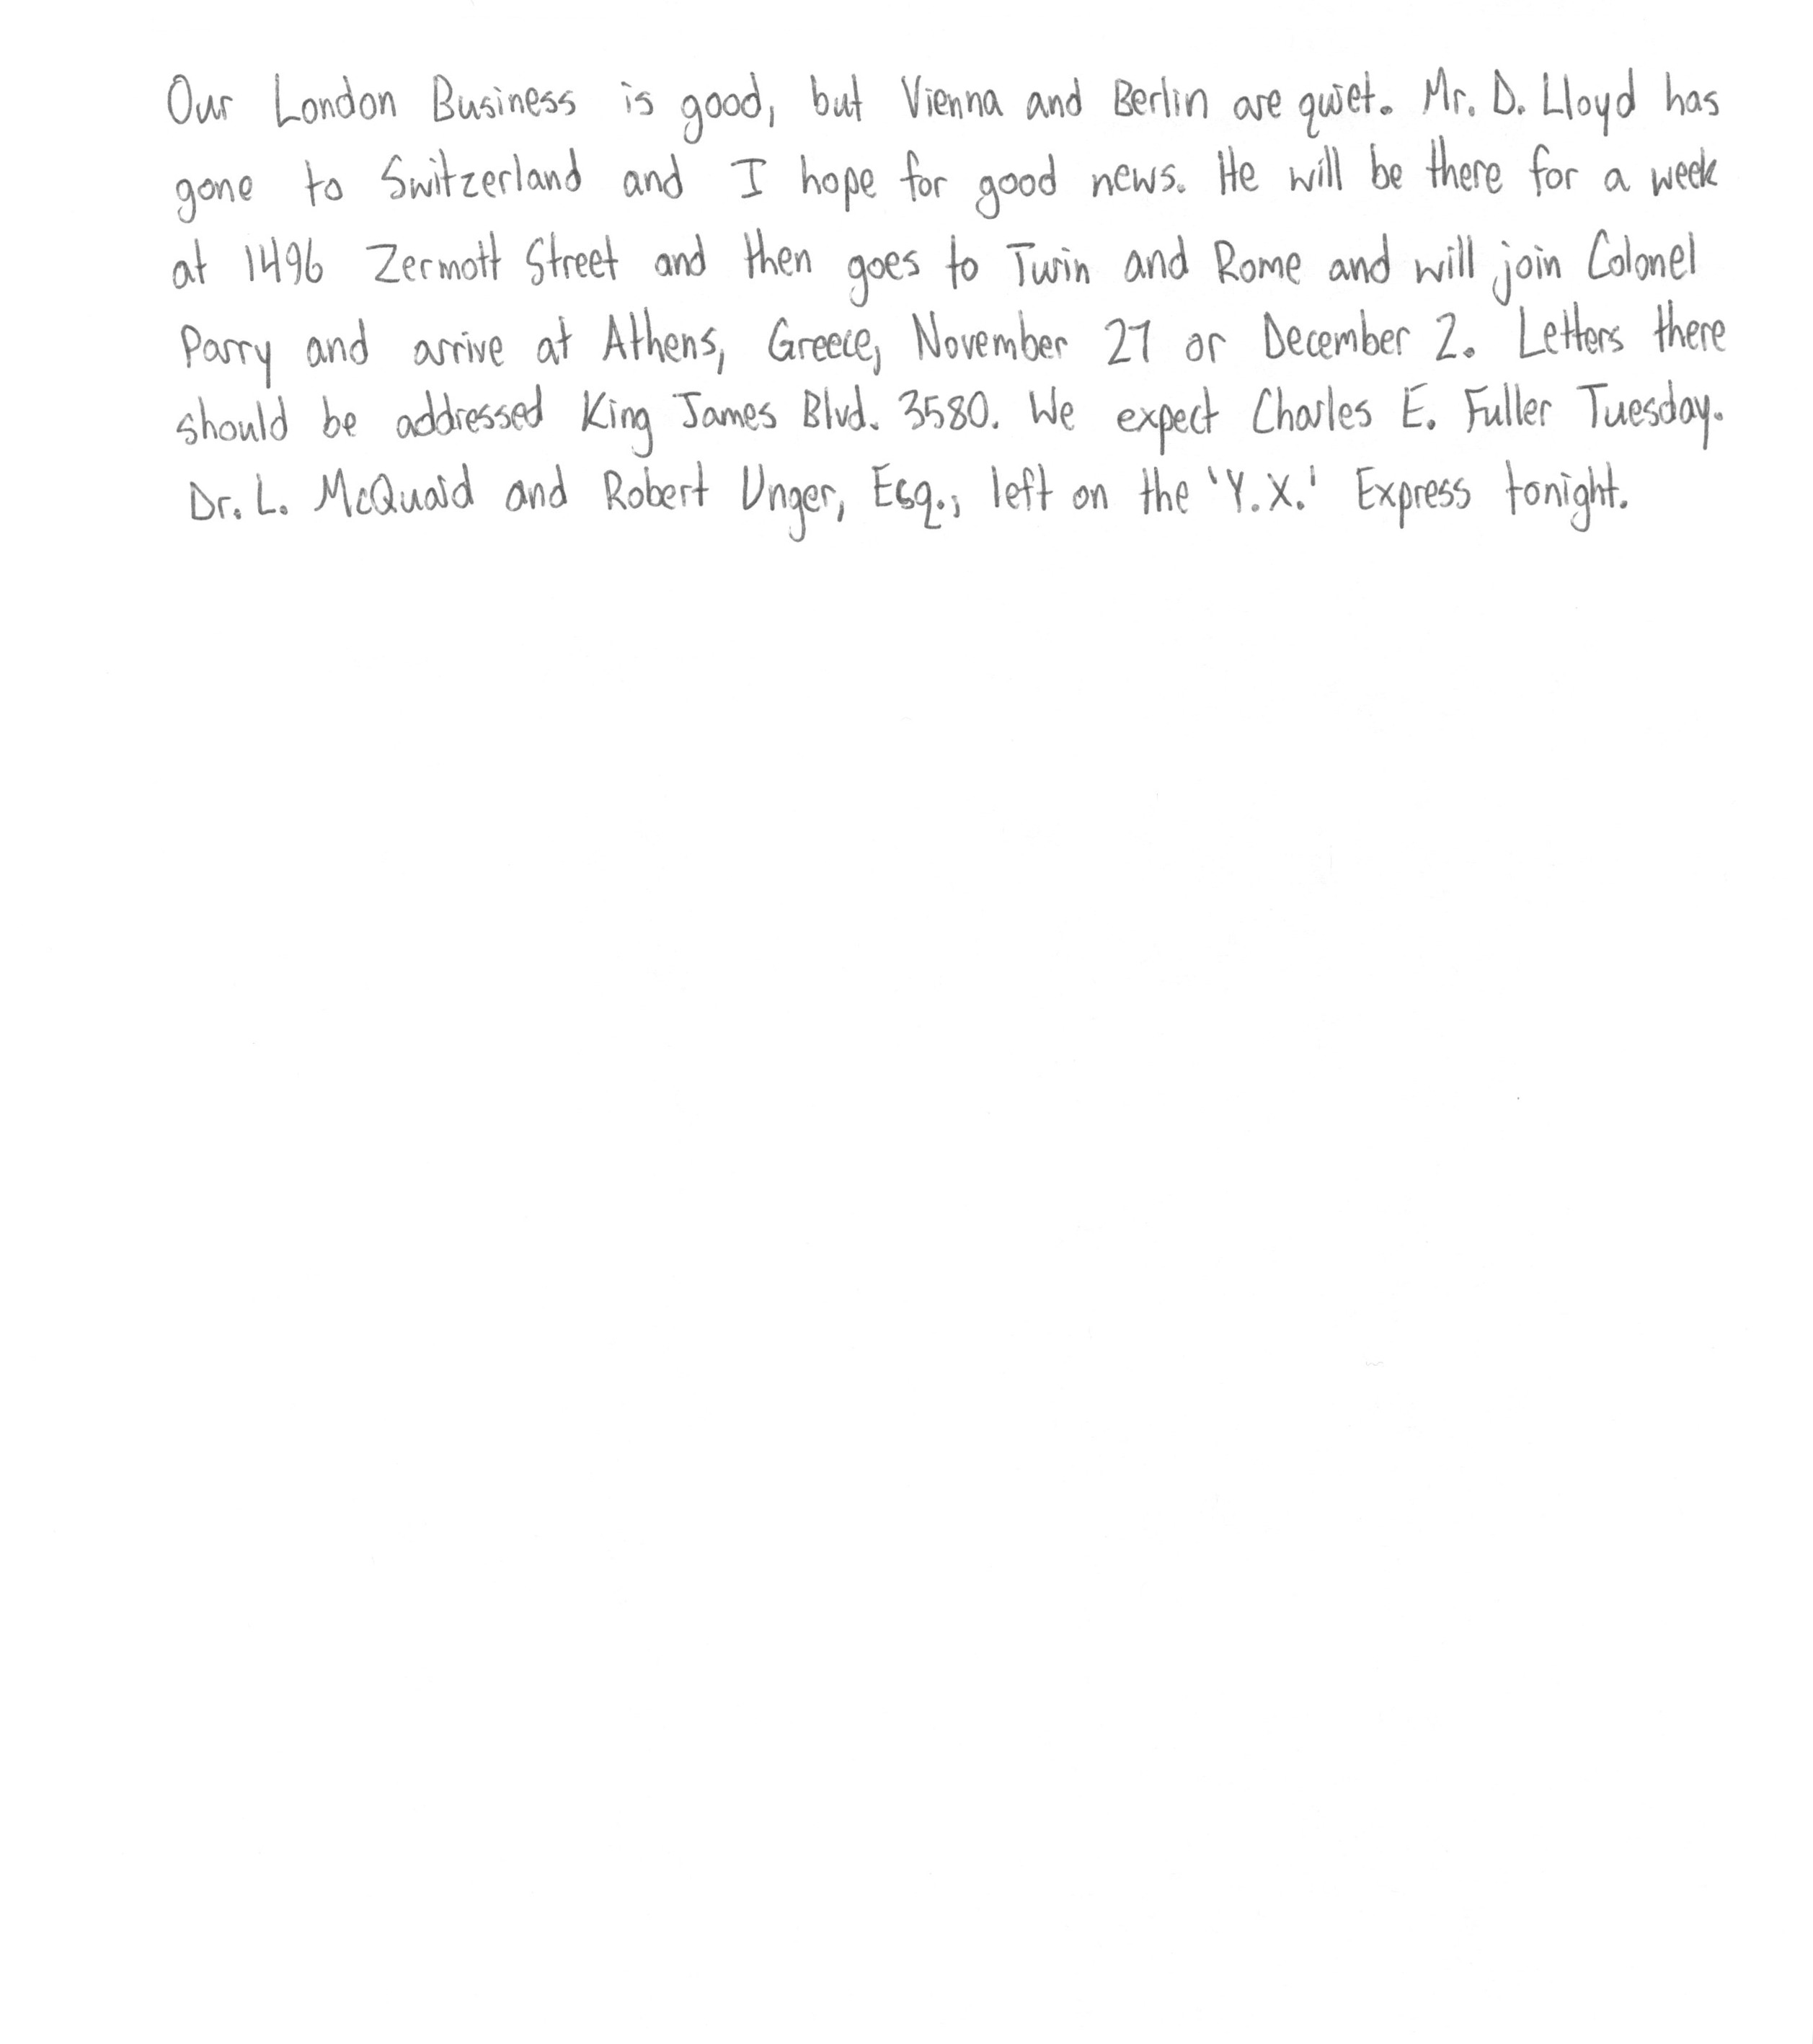 Our London Business is good, but Vienna and Berlin are quiet. Mr. D. Lloyd has
gone to Switzerland and I hope for good news. He will be there for a week
at 1496 Zermott Street and then goes to Turin and Rome and will join Colonel
Parry and arrive at Athens, Greece, November 27 or December 2. Letters there
should be addressed King James Blvd. 3580. We expect Charles E. Fuller Tuesday.
Dr. L. McQuaid and Robert Unger, Esq., left on the 'Y.X.' Express tonight.